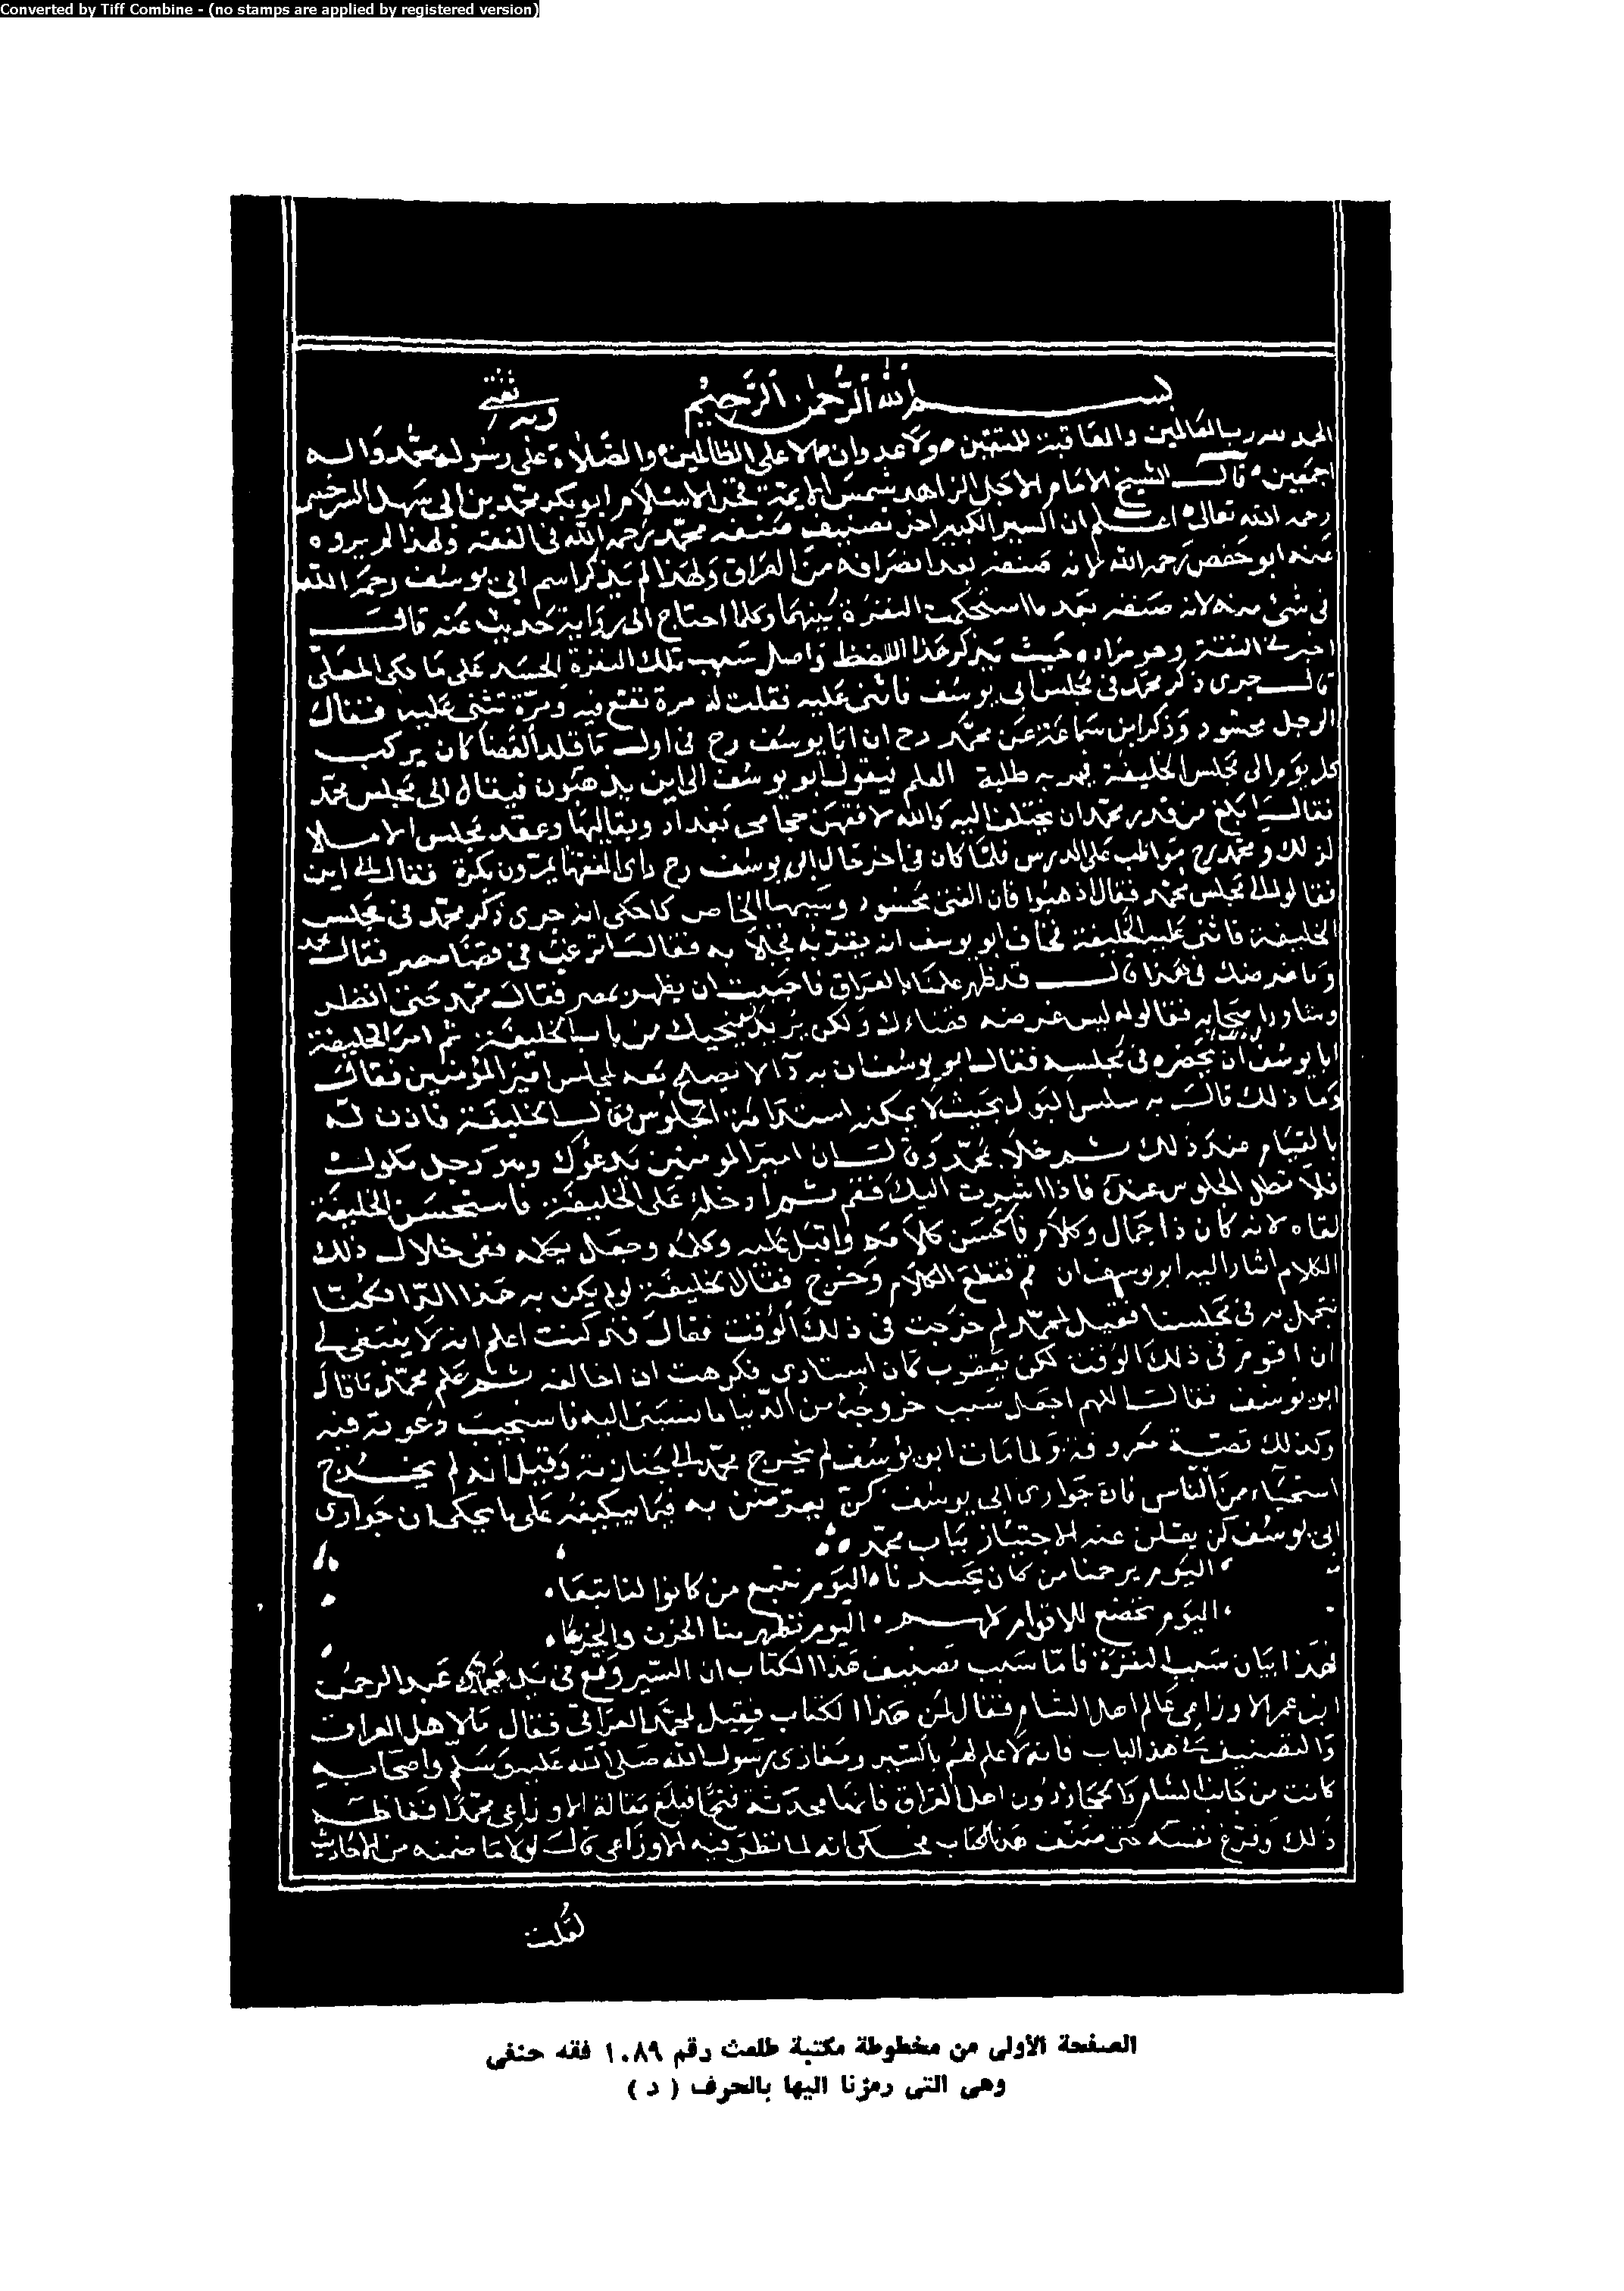 Converted by Tiff Combine - (no stamps are applied by registered version)
بسم الله الرحمن الرحيم
وبه ثقتى
الحمد لله رب العالمين والعاقبة للمتقين ولا عدوان الا على الظالمين والصلاة على رسوله محمد واله
اجمعين قال الشيخ الامام الاجل الزاهد شمس الايمة فخر الاسلام ابو بكر محمد بن ابى سهل السرخسى
رحمه الله تعالى اعلم ان السير الكبير اخر تصنيف صنفه محمد رحمه الله فى الفقه ولهذا لم يروه
عنه ابو حفص رحمه الله لانه صنفه بعد انصرافه من العراق ولهذا لم يذكر اسم ابى يوسف رحمه الله
فى شئ منه لانه صنفه بعد ما استحكمت النفرة بينهما وكلما احتاج الى رواية حديث عنه قال
اخبرنى الثقة وهو مراده حيث يذكر هذا اللفظ واصل سبب تلك النفرة الحسد على ما حكى المعلى
قال جرى ذكر محمد فى مجلس ابى يوسف فاثنى عليه فقلت له مرة تقع فيه ومرة تثنى عليه فقال
الرجل محسود وذكر ابن سماعة عن محمد رح ان ابا يوسف رح فى اول ما قلد القضا كان يركب
كل يوم الى مجلس الخليفة فيمر به طلبة العلم فيقول ابو يوسف الى اين يذهبون فيقال الى مجلس محمد
فقال ابلغ من قدر محمد ان يختلف اليه والله لافقهن حجامى بغداد وبقاليها وعقد مجلس الاملا
لذلك ومحمد رح مواظب على الدرس فلما كان فى اخر حال ابى يوسف رح راى الفقها يمرون بكرة فقال الى اين
فقالوا الى مجلس محمد فقال اذهبوا فان الفتى محسود وسببها الخاص كما حكى انه جرى ذكر محمد فى مجلس
الخليفة فاثنى عليه الخليفة فخاف ابو يوسف انه يقربه فخلا به فقال اترغب فى قضا مصر فقال محمد
وما غرضك فى هذا قال قد ظهر علمنا بالعراق فاحببت ان يظهر بمصر فقال محمد حتى انظر
وشاور اصحابه فقالوا له ليس غرضه قضاءك ولكن يريد ينحيك من باب الخليفة ثم امر الخليفة
ابا يوسف ان يحضره فى مجلسه فقال ابو يوسف ان به دآ لا يصلح معه لمجلس امير المؤمنين فقال
وما ذلك قال به سلس البول بحيث لا يمكنه استدامة الجلوس قال الخليفة فاذن له
بالقيام عند ذلك ثم خلا بمحمد وقال ان امير المومنين يدعوك وهو رجل ملول
فلا تطل الجلوس عنده فاذا اشرت اليك فقم ثم ادخله على الخليفة فاستحسن الخليفة
لقاه لانه كان ذا جمال وكلام فاستحسن كلامه واقبل عليه وكلمه وجعل يكلمه ففى خلال ذلك
الكلام اشار اليه ابو يوسف ان قم فقطع الكلام وخرج فقال الخليفة لو لم يكن به هذا الدا لكنا
نتجمل به فى مجلسنا فقيل لمحمد لم خرجت فى ذلك الوقت فقال قد كنت اعلم انه لا ينبغى لى
ان اقوم فى ذلك الوقت لكن يعقوب كان استادى فكرهت ان اخالفه ثم علم محمد ما قال
ابو يوسف فقال اللهم اجعل سبب خروجه من الدنيا ما نسبنى اليه فاستجيب دعوته فيه
وكذلك قصته معروفة ولما مات ابو يوسف لم يخرج محمد الى جنازته وقيل انه لم يخرج
استحياء من الناس فان جوارى ابى يوسف كن يعرضن به فيما يبكينه على ما يحكى ان جوارى
ابى يوسف كن يقلن عند الاجتياز بباب محمد
اليوم يرحمنا من كان يحسدنا اليوم نتبع من كانوا لنا تبعا
اليوم نخضع للاقوام كلهم اليوم نظهر منا الحزن والجزعا
فهذا بيان سبب النفرة فاما سبب تصنيف هذا الكتاب ان السير وقع فى يد عبد الرحمن
ابن عمر الاوزاعى عالم اهل الشام فقال لمن هذا الكتاب فقيل لمحمد العراقى فقال مالاهل العراق
والتصنيف فى هذا الباب فانه لا علم لهم بالسير ومغازى رسول الله صلى الله عليه وسلم واصحابه
كانت من جانب الشام والحجاز دون اهل العراق فانها محدثة فتحا فبلغ مقالة الاوزاعى محمدا فغاظه
ذلك وفرغ نفسه حتى صنف هذا الكتاب فحكى انه لما نظر فيه الاوزاعى قال لولا ما ضمنه من الاحاديث
لقلت
الصفحة الأولى من مخطوطة مكتبة طلعت رقم ١٠٨٩ فقه حنفى
وهى التى رمزنا اليها بالحرف ( د )